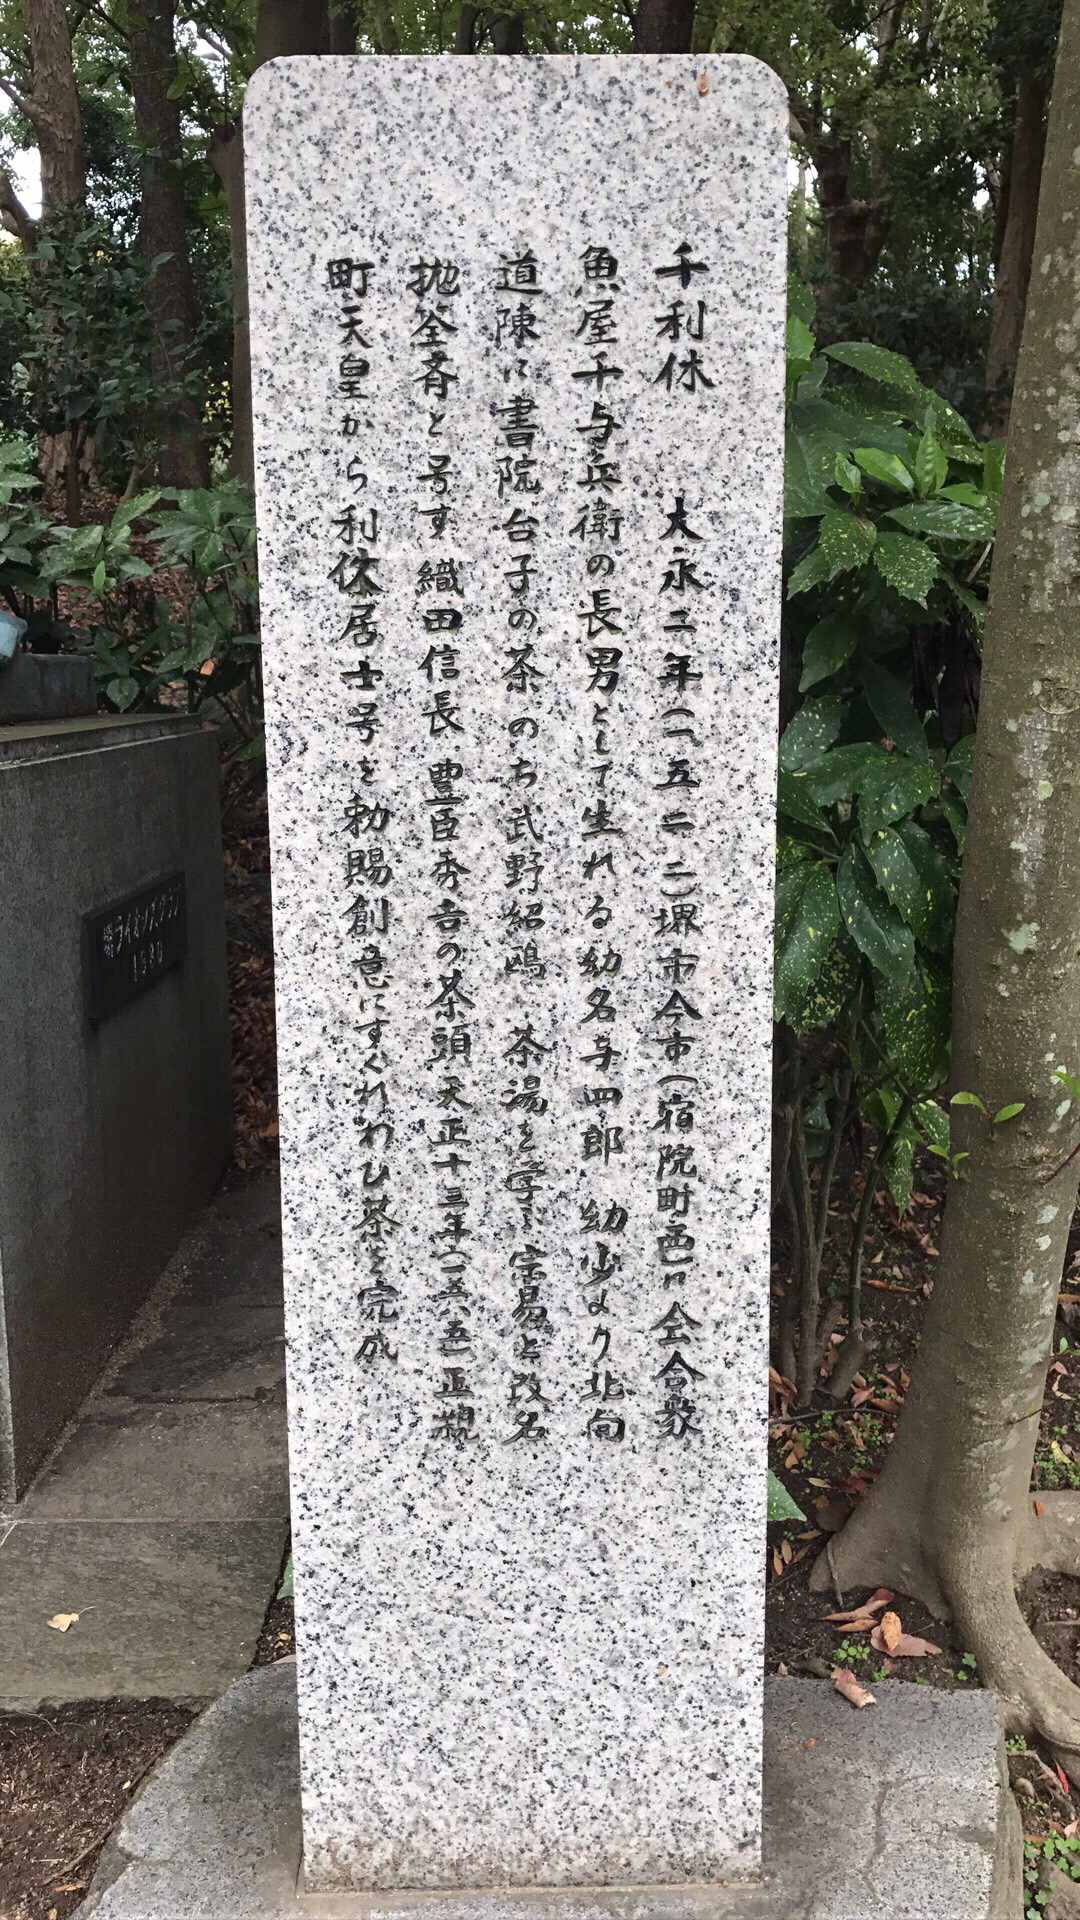 千利休 大永二年(一五二二)堺市今市(宿院町西)に会合衆
魚屋千与兵衛の長男として生れる幼名与四郎 幼少より北向
道陳に書院台子の茶のち武野紹鴎に茶湯を学ぶ宗易と改名
抛筌斉と号す 織田信長 豊臣秀吉の茶頭 天正十三年(一五八五)正親
町天皇から利休居士号を勅賜創意にすぐれわび茶を完成
堺ライオンズクラブ
1980